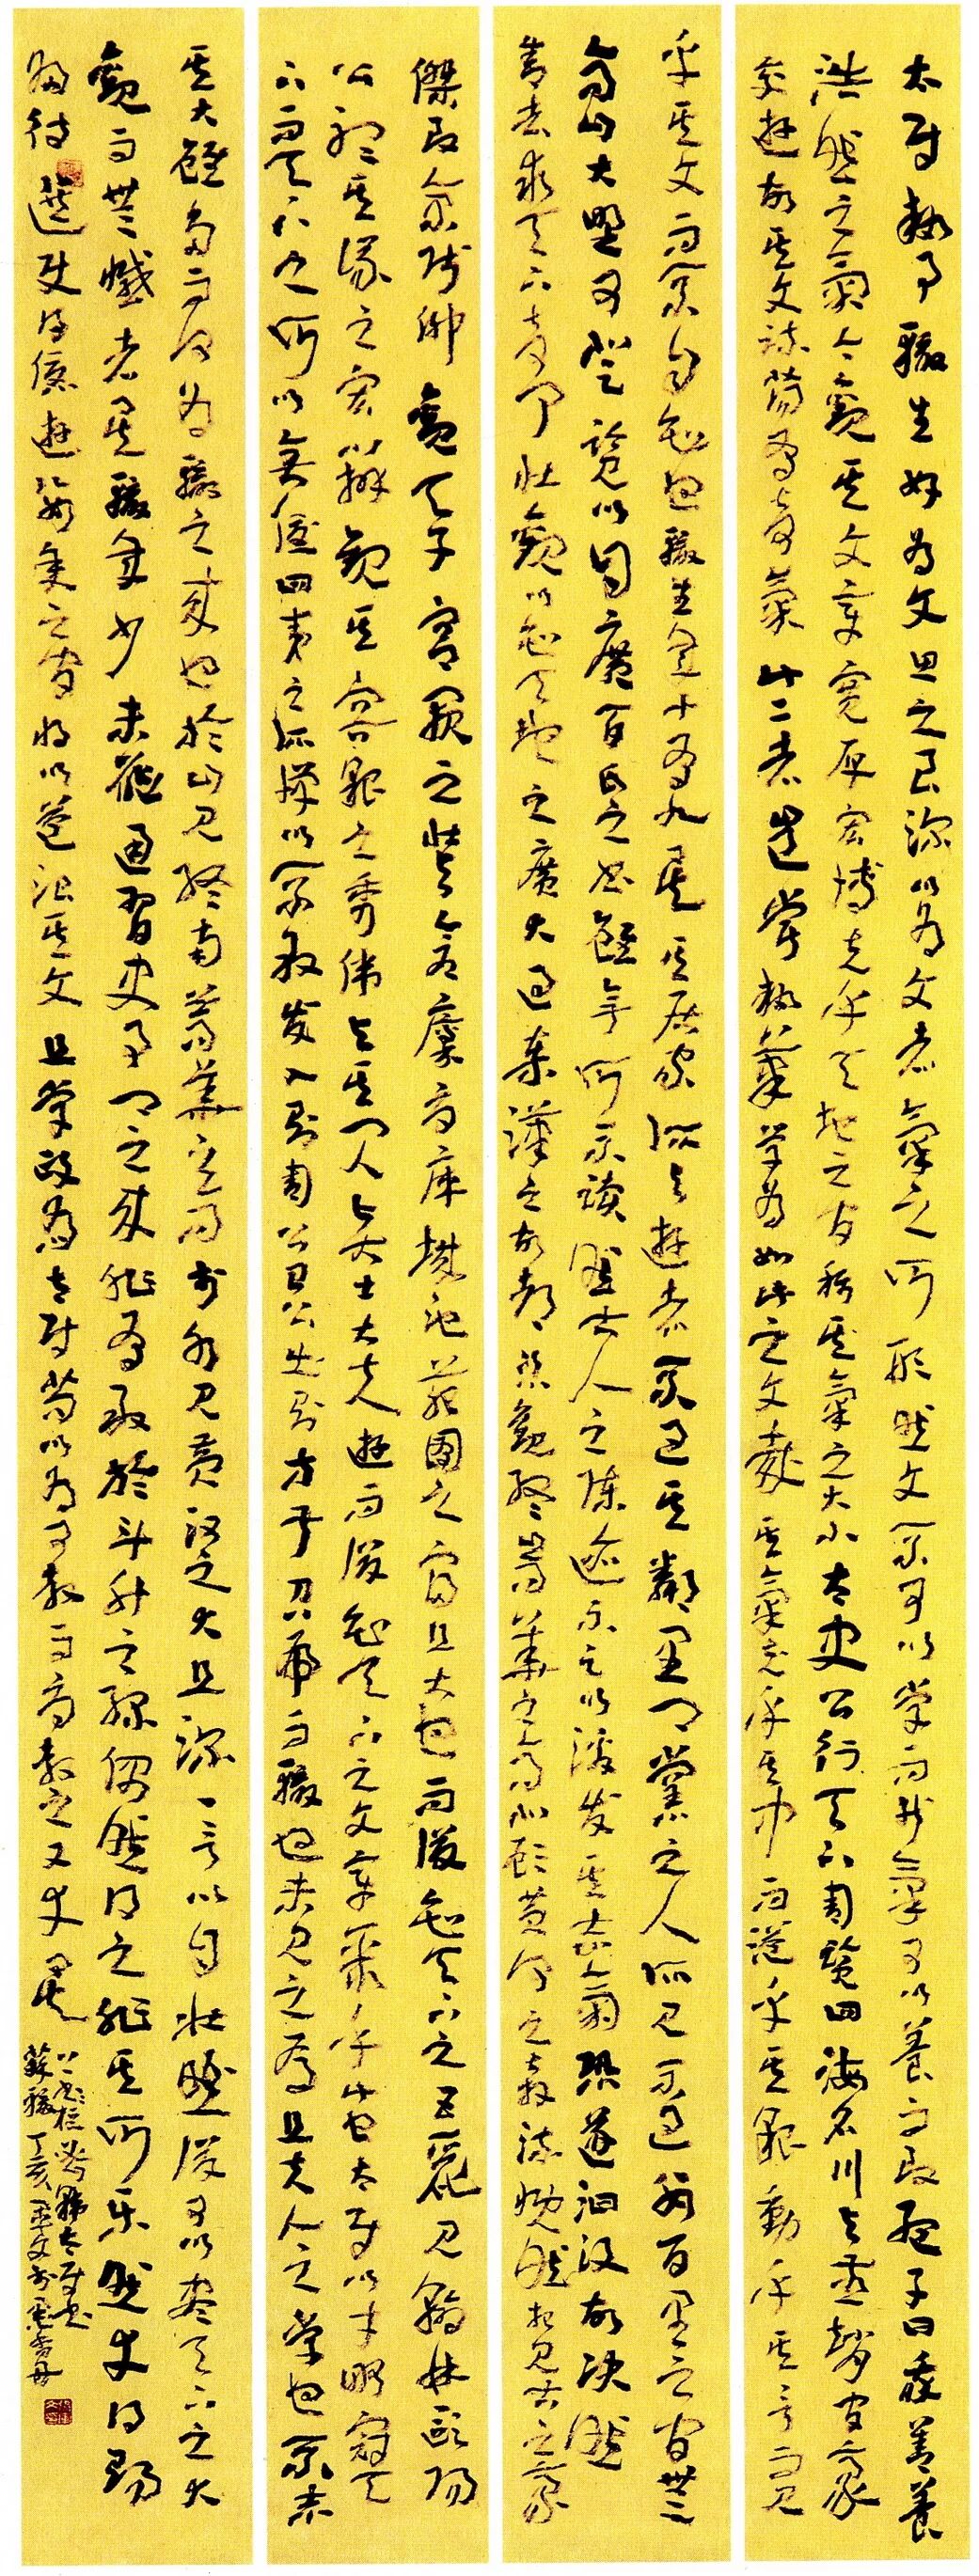 太尉執事轍生好為文思之至深以為文者氣之所形然文不可以學而能氣可以養而致孟子曰我善養
浩然之氣今觀其文章寬厚宏博充乎天地之間稱其氣之大小太史公行天下周覽四海名川與燕趙間豪
交遊故其文疏蕩有奇氣此二者豈嘗執筆學為如此之文哉其氣充乎其中而溢乎其貌動乎其言而見
乎其文而不自知也轍生年十有九矣其居家所與遊者不過其鄰里鄉黨之人所見不過數百里之間無
高山大野可登覽以自廣百氏之書雖無所不讀然古人之陳迹不足以激發其志氣恐遂汩沒故決然
舍去求天下奇聞壯觀以知天地之廣大過秦漢之故都恣觀終嵩華之高北顧黃河之奔流慨然想見古之豪
傑至京師觀天子宮闕之壯與倉廩府庫城池苑囿之富且大也而後知天下之巨麗見翰林歐陽
公聽其議之宏辯觀其容貌之秀偉與其門人賢士大夫遊而後知天下之文章聚乎此也太尉以才略冠天
下而天下之所以無憂四夷之所憚以不敢發入則周公召公出則方叔召虎而轍也未見之焉且夫人之學也不志
其大雖多而何為轍之來也於山見終南嵩華之高於水見黃河之大且深一言以自壯然後可以盡天下之大
觀而無憾者矣轍年少未能通習吏事鄉之來非有取於斗升之祿偶然得之非其所樂然幸得賜
歸待選使得優遊數年之間將以益治其文且學政焉太尉苟以為可教而辱教之又幸矣
上樞密韓太尉書
蘇轍丁亥